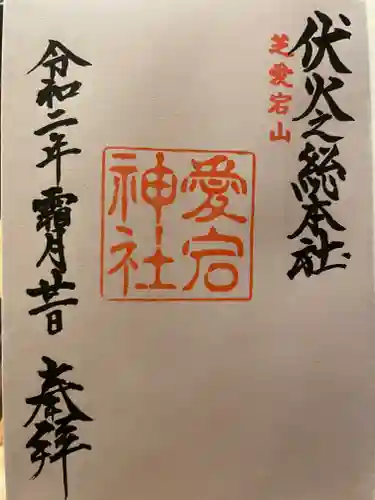 伏火之総本社
芝愛宕山
愛宕
神社
令和二年霜月廿日
奉拝